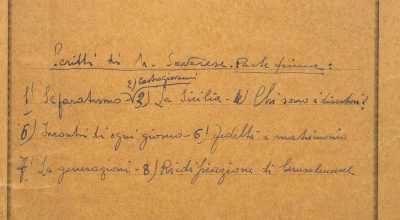 Scritti di N. Savarese. Parte prima:
2) Castrogiovanni
1) Separatismo - (3) La Sicilia - 4) Chi sono i disertori?
5) Incontri di ogni giorno - 6) Fedeltà e matrimonio
7) La generazioni - 8) Riedificazione di Gerusalemme